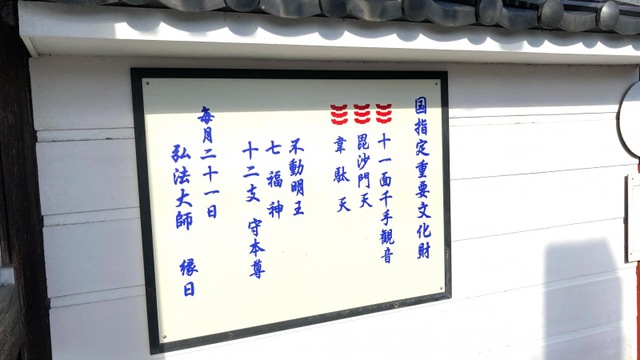 国指定重要文化財
十一面千手観音
毘沙門天
韋駄天
不動明王
七福神
十二支 守本尊
毎月二十一日
弘法大師 縁日